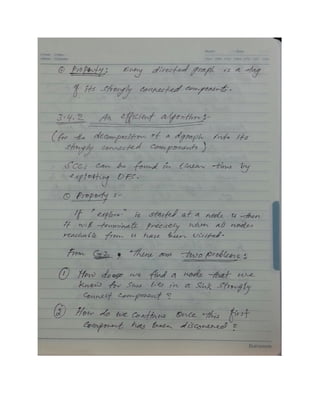 ⊙ Property: Every directed graph is a dag
of its strongly connected components.
3.4.2 An efficient algorithm:-
(for the decomposition of a dgraph into its
strongly connected components)
SCCs can be found in linear-time by
exploiting DFS.
⊙ Property :-
If "explore" is started at a node u then
it will terminate precisely when all nodes
reachable from u have been visited.
From, There are two problems:
① How do we find a node that we
know for sure lies in a sink strongly
connect component?
② How do we continue once this first
component has been discovered?